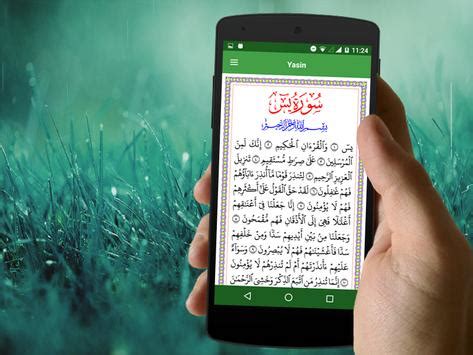 11:24
Yasin
سُورَةُ يسٓ
بِسْمِ ٱللَّهِ ٱلرَّحْمَٰنِ ٱلرَّحِيمِ
يسٓ ۝١ وَٱلْقُرْءَانِ ٱلْحَكِيمِ ۝٢ إِنَّكَ لَمِنَ
ٱلْمُرْسَلِينَ ۝٣ عَلَىٰ صِرَٰطٍ مُّسْتَقِيمٍ ۝٤ تَنزِيلَ
ٱلْعَزِيزِ ٱلرَّحِيمِ ۝٥ لِتُنذِرَ قَوْمًا مَّآ أُنذِرَ ءَابَآؤُهُمْ
فَهُمْ غَٰفِلُونَ ۝٦ لَقَدْ حَقَّ ٱلْقَوْلُ عَلَىٰٓ أَكْثَرِهِمْ
فَهُمْ لَا يُؤْمِنُونَ ۝٧ إِنَّا جَعَلْنَا فِىٓ أَعْنَٰقِهِمْ
أَغْلَٰلًا فَهِىَ إِلَى ٱلْأَذْقَانِ فَهُم مُّقْمَحُونَ ۝٨
وَجَعَلْنَا مِنۢ بَيْنِ أَيْدِيهِمْ سَدًّا وَمِنْ خَلْفِهِمْ
سَدًّا فَأَغْشَيْنَٰهُمْ فَهُمْ لَا يُبْصِرُونَ ۝٩ وَسَوَآءٌ
عَلَيْهِمْ ءَأَنذَرْتَهُمْ أَمْ لَمْ تُنذِرْهُمْ لَا يُؤْمِنُونَ
۝١٠ إِنَّمَا تُنذِرُ مَنِ ٱتَّبَعَ ٱلذِّكْرَ وَخَشِىَ ٱلرَّحْمَٰنَ